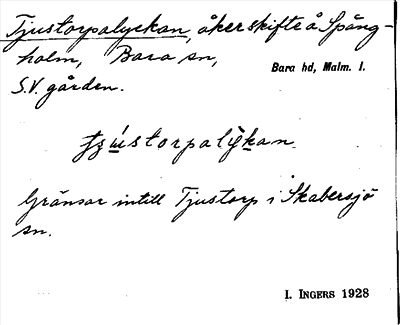 Tjustorpalyckan, åkerskifte å Spång-
holm, Bara sn,
Bara hd, Malm. l.
S.V. gården.
Gränsar intill Tjustorp i Skabersjö
sn.
I. INGERS 1928